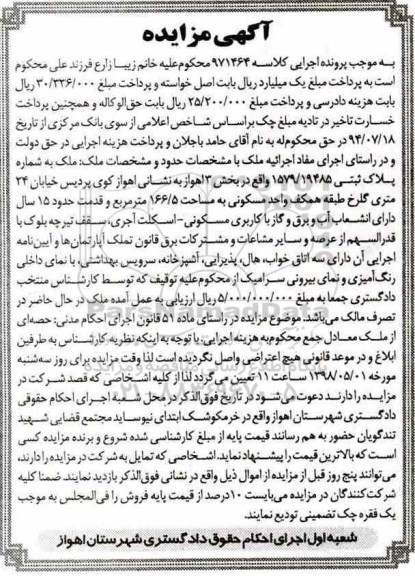 آگهی مزایده
به موجب پرونده اجرایی کلاسه ۹۷۱۴۶۴ محکوم‌علیه خانم زیبا زارع فرزند علی محکوم
است به پرداخت مبلغ یک میلیارد ریال بابت اصل خواسته و پرداخت مبلغ ۳۰/۳۳۶/۰۰۰ ریال
بابت هزینه دادرسی و پرداخت مبلغ ۲۵/۲۰۰/۰۰۰ ریال بابت حق‌الوکاله و همچنین پرداخت
خسارت تاخیر در تادیه مبلغ چک براساس شاخص اعلامی از سوی بانک مرکزی از تاریخ
۹۴/۰۷/۱۸ در حق محکوم‌له به نام آقای حامد باجلان و پرداخت هزینه اجرایی در حق دولت
و در راستای اجرای مفاد اجرائیه ملک با مشخصات حدود و مشخصات ملک: ملک به شماره
پلاک ثبتی ۱۵۷۹/۱۹۴۸۵ واقع در بخش ۳ اهواز به نشانی اهواز کوی پردیس خیابان ۲۴
متری گلرخ طبقه همکف واحد مسکونی به مساحت ۱۶۶/۵ مترمربع و قدمت حدود ۱۵ سال
دارای انشعاب آب و برق و گاز با کاربری مسکونی-اسکلت آجری، سقف تیرچه بلوک با
قدرالسهم از عرصه و سایر مشاعات و مشترکات برق قانون تملک آپارتمان‌ها و آیین‌نامه
اجرایی آن دارای سه اتاق خواب، هال، پذیرایی، آشپزخانه، سرویس بهداشتی، با نمای داخلی
رنگ‌آمیزی و نمای بیرونی سرامیک از محکوم‌علیه توقیف که توسط کارشناس منتخب
دادگستری جمعا به مبلغ ۵/۰۰۰/۰۰۰/۰۰۰ ریال ارزیابی به عمل آمده ملک در حال حاضر در
تصرف مالک می‌باشد. موضوع مزایده در راستای ماده ۵۱ قانون اجرای احکام مدنی: حصه‌ای
از ملک معادل جمع محکوم‌به هزینه اجرایی. با توجه به اینکه نظریه کارشناس به طرفین
ابلاغ و در موعد قانونی هیچ اعتراضی واصل نگردیده است لذا وقت مزایده برای روز سه‌شنبه
مورخه ۱۳۹۸/۰۵/۰۱ ساعت ۱۱ تعیین می‌گردد لذا از کلیه اشخاصی که قصد شرکت در
مزایده را دارند دعوت می‌شود در تاریخ فوق‌الذکر در محل شعبه اجرای احکام حقوقی
دادگستری شهرستان اهواز واقع در خرمکوشک ابتدای نیوساید مجتمع قضایی شهید
تندگویان حضور به هم رسانند قیمت پایه از مبلغ کارشناسی شده شروع و برنده مزایده کسی
است که بالاترین قیمت را پیشنهاد نماید. اشخاصی که تمایل به شرکت در مزایده را دارند،
می‌توانند پنج روز قبل از مزایده از اموال ذیل واقع در نشانی فوق‌الذکر بازدید نمایند. ضمنا کلیه
شرکت‌کنندگان در مزایده می‌بایست ۱۰ درصد از قیمت پایه فروش را فی‌المجلس به موجب
یک فقره چک تضمینی تودیع نمایند.
شعبه اول اجرای احکام حقوق دادگستری شهرستان اهواز